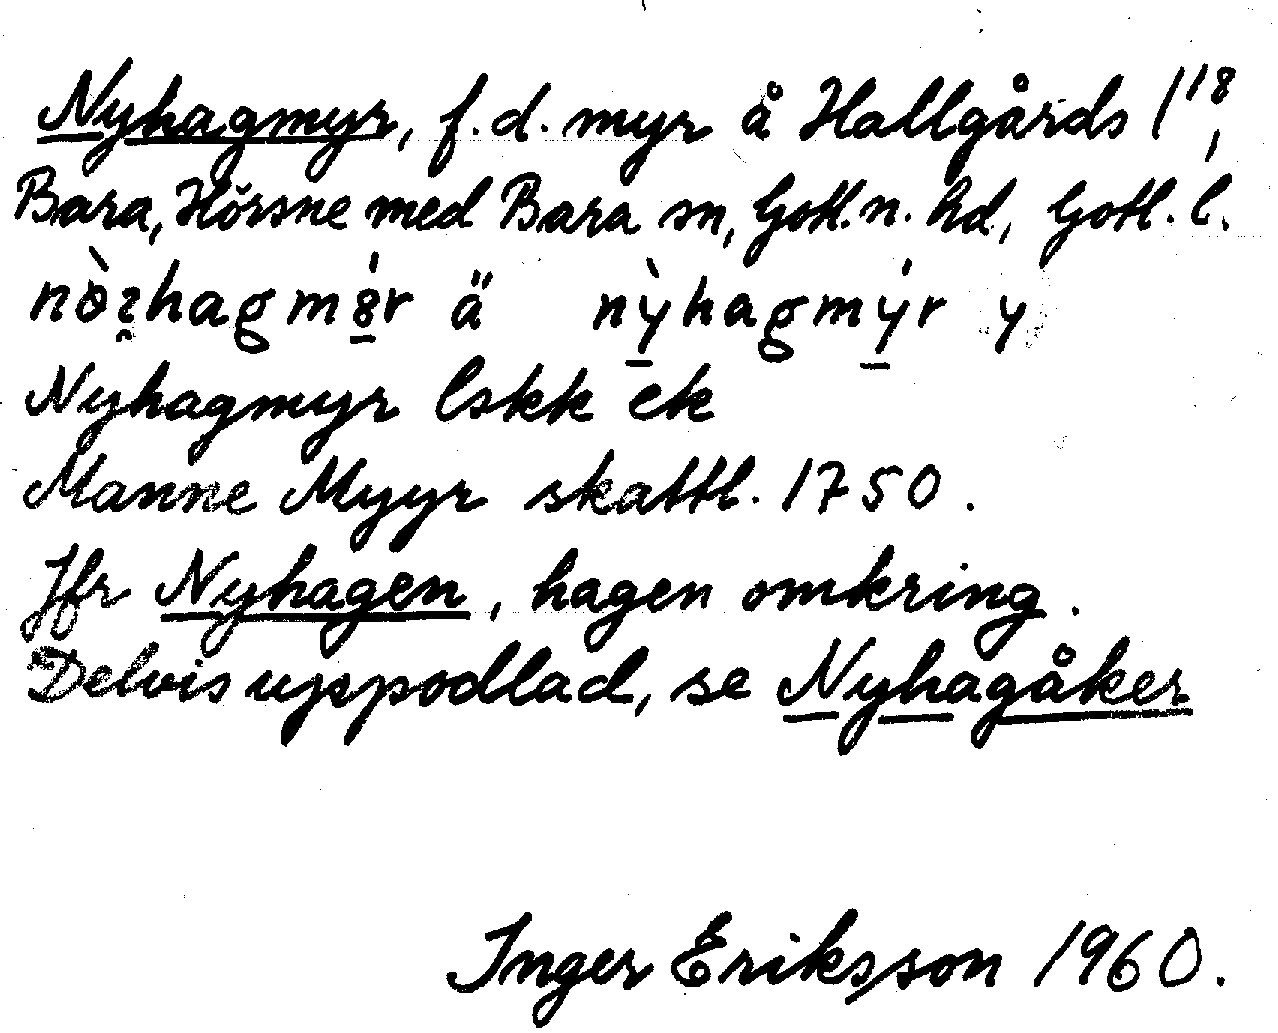 Nyhagmyr, f.d. myr å Hallgårds 1¹⁸,
Bara, Hörsne med Bara sn, Gotl.n. hd, Gotl. l.
ä nỳhagmýr y
Nyhagmyr lskk ek
Manne Myyr skattl. 1750.
Jfr Nyhagen, hagen omkring.
Delvis uppodlad, se Nyhagåker
Inger Eriksson 1960.